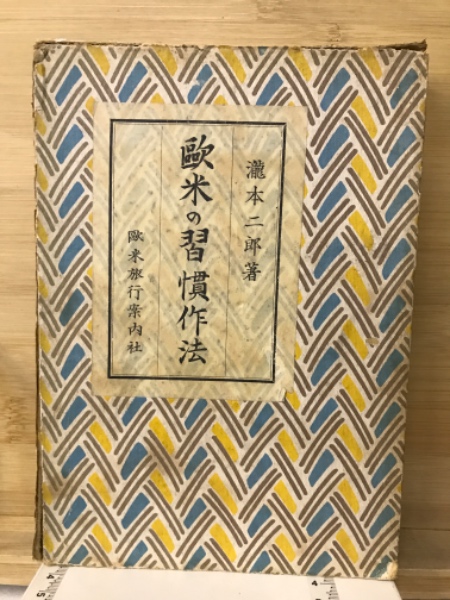 瀧本二郎著
歐米の習慣作法
歐米旅行案内社